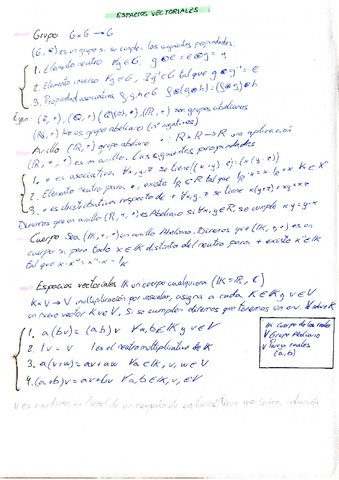 ESPACIOS VECTORIALES
Grupo G×G → G
(G, ⊛) es un grupo si se cumplen las siguientes propiedades:
1. Elemento neutro ∀g∈G, g⊛e = e⊛g = g
2. Elemento inverso ∀g∈G, ∃g⁻¹∈G tal que g⊛g⁻¹ = e
3. Propiedad asociativa g, g, h∈G g⊛(g⊛h) = (g⊛g)⊛h
Ejem: (Z, +), (Q, +) (Q\{0}, ·), (R, +) son grupos abelianos
(N, +) No es grupo abeliano (nº negativos)
Anillo (R, +) grupo abeliano · : R×R → R una aplicación
(R, +, ·) es un anillo. Las siguientes propiedades
1. · es asociativa ∀x, y, z se tiene (x·y)·z = (x·(y·z))
2. Elemento neutro para ·, existe 1R ∈ R tal que 1R·x = x·1R = x ∀x∈X
3. · es distributiva respecto de + ∀x, y, z se tiene x(y+z) = xy+xz
Diremos que un anillo (R, +, ·) es Abeliano si ∀x, y∈R, se cumple x·y = y·x
Cuerpo Sea (IK, +, ·) un anillo Abeliano. Diremos que (IK, +, ·) es un
cuerpo si, para todo x∈IK distinto del neutro para + existe x⁻¹∈IK
tal que x·x⁻¹ = x⁻¹·x = 1K
Espacios vectoriales IK un cuerpo cualquiera (IK = R, C)
K×V → V, multiplicación por escalar, asigna a cada K∈IK y v∈V
un nuevo vector K·v∈V, si se cumplen diremos que tenemos un e.v. sobre K
1. a(bv) = (a·b)v ∀a, b∈IK y v∈V
2. 1·v = v 1 es el neutro multiplicativo de K
3. a(v+w) = av+aw ∀a∈IK, v, w∈V
4. (a+b)v = av+bv ∀a, b∈IK, v∈V
IK cuerpo de los reales
V Grupo Abeliano
V Pareja reales
(a, b)